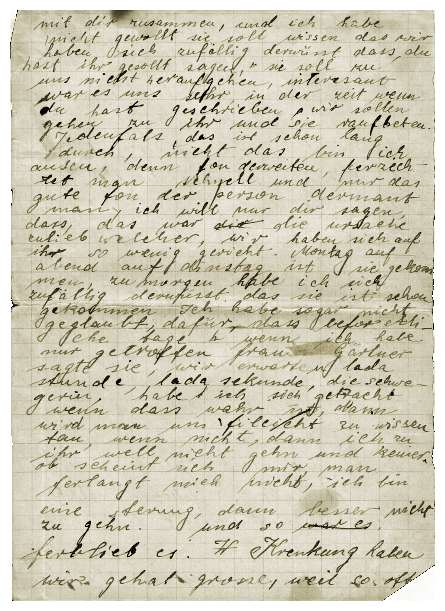 mit dir zusammen, und ich habe
nicht gewollt sie soll wissen das wir
haben sich zufällig derwusst dass, du
hast ihr gesollt sagen, "sie soll zu
uns nicht heraufgehen, interesant
war es uns sehr in der zeit wenn
du hast geschrieben, wir sollen
gehen zu ihr und sie raufbeten.
Jedenfals, das ist schon lang
durch, nicht das bin ich
anden, denn fon derweiten, ferzeih
tet man schnell und nur das
gute fon der person dermant
man, ich will nur dir sagen,
dass, das war die ursache
zulieb welcher, wir haben sich auf
ihr so wenig gericht. Montag auf
abend auf dinstag ist sie gekom
men, zu morgen habe ich sich
zufällig derwusst das sie ist schon
gekommen Ich habe sogar nicht
geglaubt, dafür, dass
che tage " wenn ich habe
nur getroffen frau Gärtner
sagte sie, wir erwarten lada
stunde, lada sekunde, die schwe-
gerin, habe ich sich getracht
wenn dass wahr ist, dann
wird man uns fileicht zu wissen
tun, wenn nicht, dann ich zu
ihr well nicht gehn und
ob scheint sich mir, man
ferlangt mich nicht, ich bin
eine sterung, dann besser nicht
zu gehn. und so war es.
ferblieb es. H Krenkung haben
wir gehat grosse, weil so oft